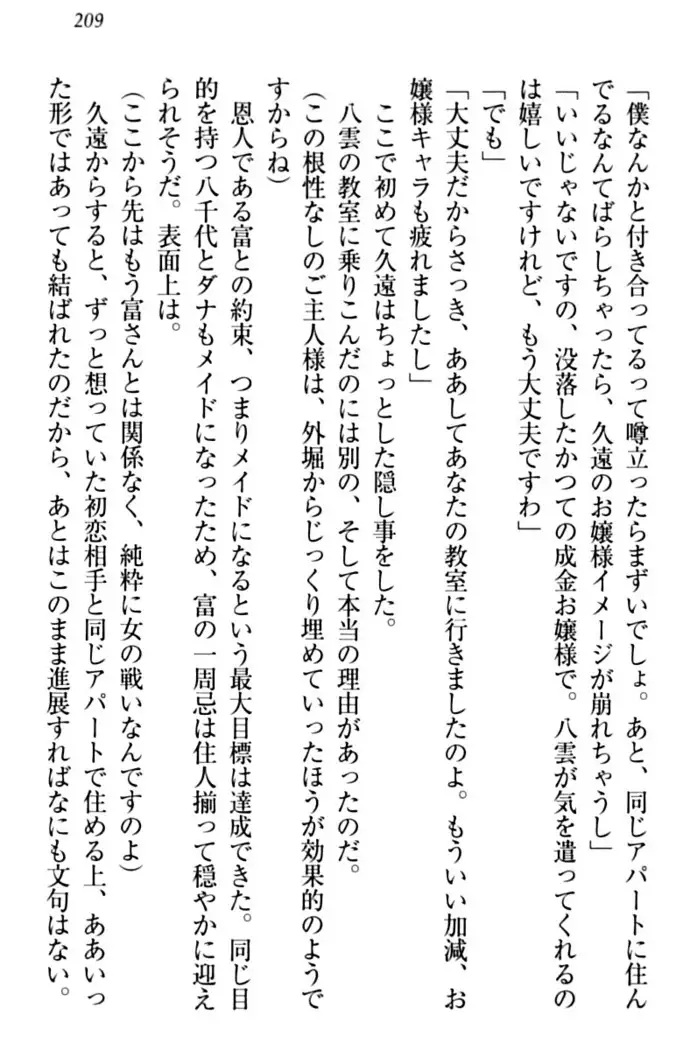 209
「僕なんかと付き合ってるって噂立ったらまずいでしょ。あと、同じアパートに住ん
でるなんてばらしちゃったら、久遠のお嬢様イメージが崩れちゃうし」
「いいじゃないですの、没落したかつての成金お嬢様で。八雲が気を遣ってくれるの
は嬉しいですけれど、もう大丈夫ですわ」
「でも」
「大丈夫だからさっき、ああしてあなたの教室に行きましたのよ。もういい加減、お
嬢様キャラも疲れましたし」
ここで初めて久遠はちょっとした隠し事をした。
八雲の教室に乗りこんだのには別の、そして本当の理由があったのだ。
(この根性なしのご主人様は、外堀からじっくり埋めていったほうが効果的のようで
すからね)
恩人である富との約束、つまりメイドになるという最大目標は達成できた。同じ目
的を持つ八千代とダナもメイドになったため、富の一周忌は住人揃って穏やかに迎え
られそうだ。表面上は。
(ここから先はもう富さんとは関係なく、純粋に女の戦いなんですのよ)
久遠からすると、ずっと想っていた初恋相手と同じアパートで住める上、ああいっ
た形ではあっても結ばれたのだから、あとはこのまま進展すればなにも文句はない。